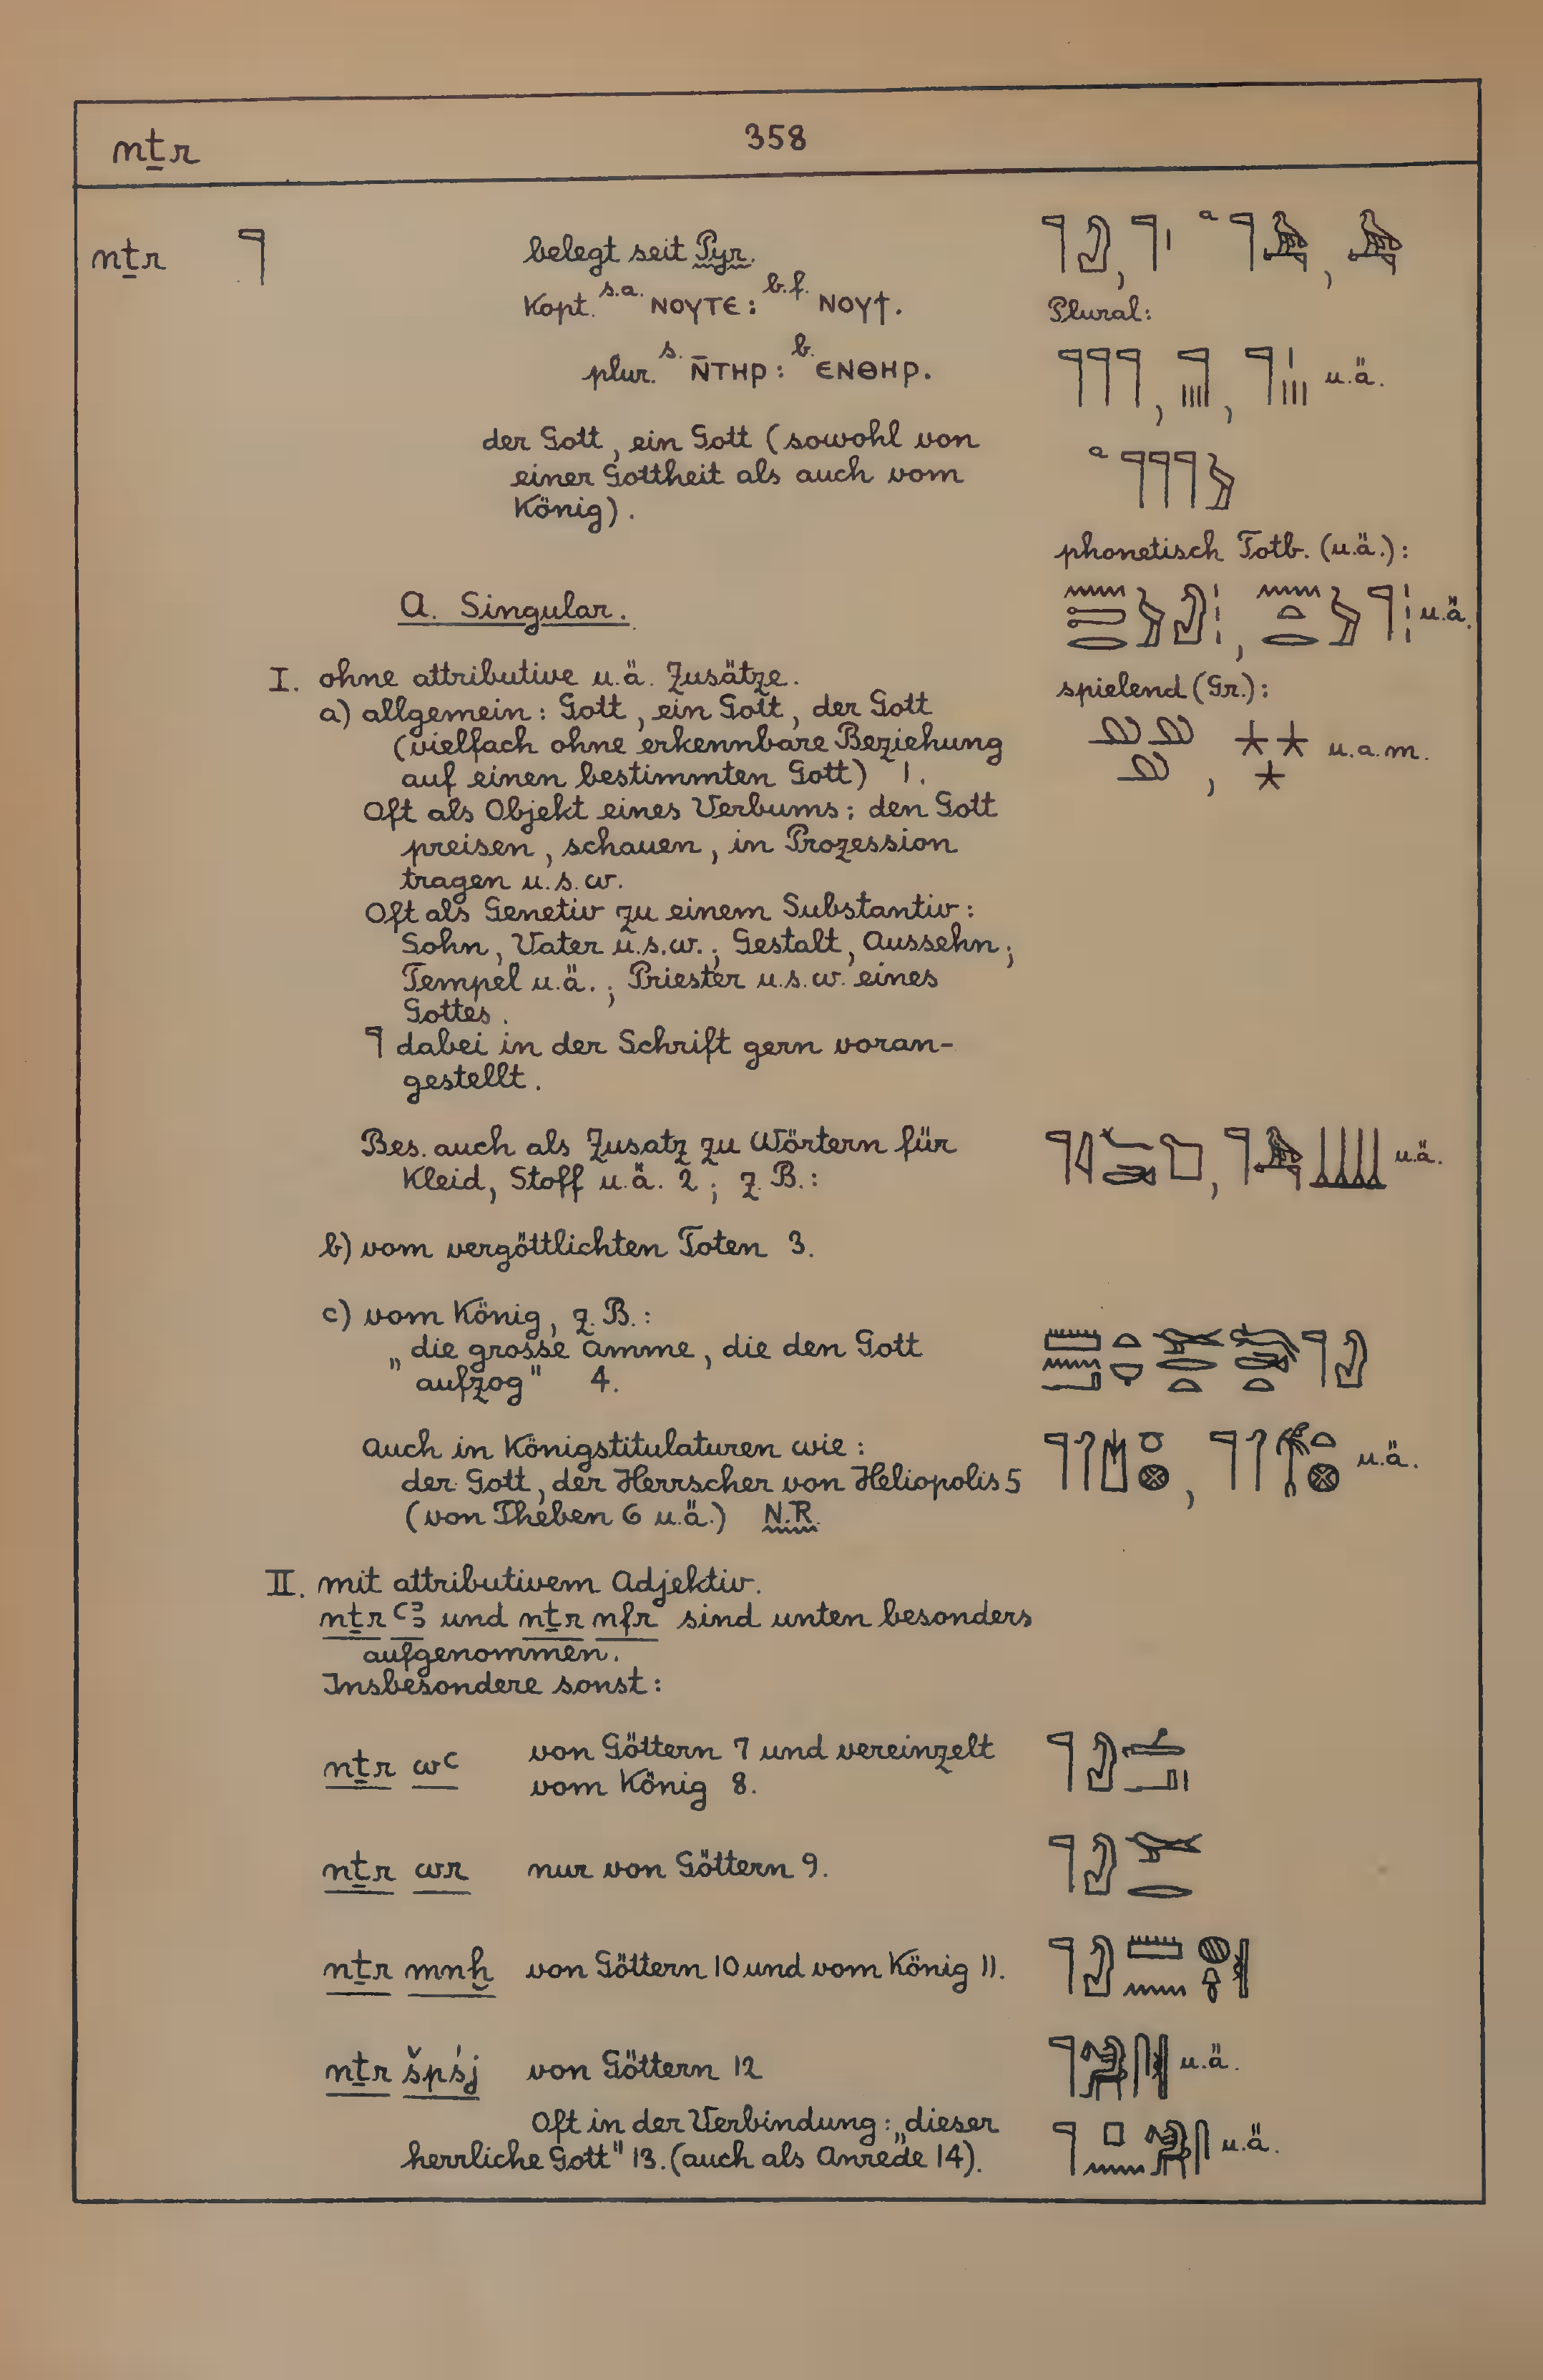 nṯr 358
nṯr 𓊹 belegt seit Pyr.
Kopt. s.a. ΝΟΥΤЄ : b.f. ΝΟΥϮ.
Plural:
plur. s. N̄ΤΗΡ : b. ЄΝΘΗΡ.
u.ä.
der Gott, ein Gott (sowohl von
einer Gottheit als auch vom
König).
a
phonetisch Totb. (u.ä.):
u.ä.
A. Singular.
I. ohne attributive u.ä. Zusätze.
spielend (Gr.):
a) allgemein: Gott, ein Gott, der Gott
(vielfach ohne erkennbare Beziehung
u.a.m.
auf einen bestimmten Gott) 1.
Oft als Objekt eines Verbums: den Gott
preisen, schauen, in Prozession
tragen u.s.w.
Oft als Genetiv zu einem Substantiv:
Sohn, Vater u.s.w.; Gestalt, Aussehn;
Tempel u.ä.; Priester u.s.w. eines
Gottes.
𓊹 dabei in der Schrift gern voran-
gestellt.
Bes. auch als Zusatz zu Wörtern für
Kleid, Stoff u.ä. 2; z.B.:
u.ä.
b) vom vergöttlichten Toten 3.
c) vom König, z.B.:
„die grosse Amme, die den Gott
aufzog" 4.
Auch in Königstitulaturen wie:
der Gott, der Herrscher von Heliopolis 5
u.ä.
(von Theben 6 u.ä.) N.R.
II. mit attributivem Adjektiv.
nṯr ꜥꜣ und nṯr nfr sind unten besonders
aufgenommen.
Insbesondere sonst:
nṯr wꜥ von Göttern 7 und vereinzelt
vom König 8.
nṯr wr nur von Göttern 9.
nṯr mnḫ von Göttern 10 und vom König 11.
nṯr špśj von Göttern 12
u.ä.
Oft in der Verbindung: „dieser
herrliche Gott" 13. (auch als Anrede 14).
u.ä.